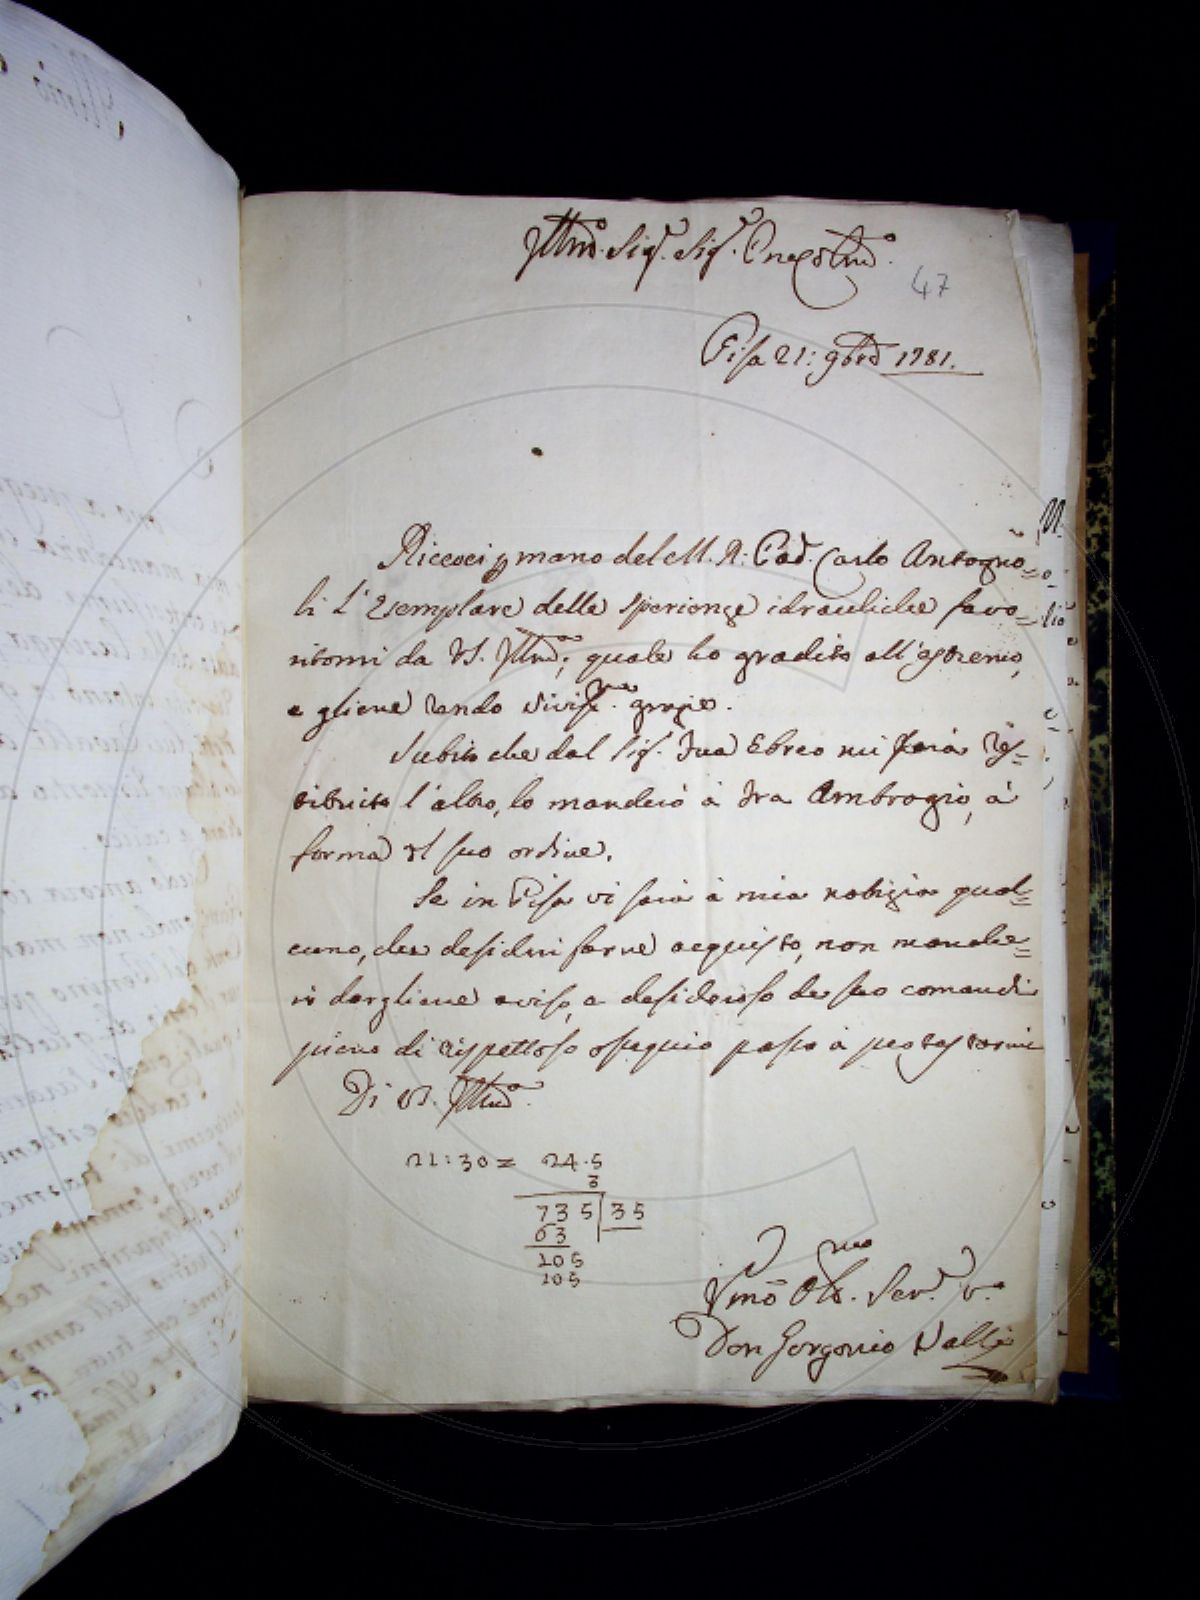 Illmo. Sig.r Sig.r Pne Colmo.
47
Pisa 21: 9bre 1781.
Ricevei p mano del M. R. Pad. Carlo Antogno=
li l'Esemplare delle Sperienze idrauliche favo=
ritomi da VS. Illma; quale ho gradito all'estremo,
e gliene rendo vivissme grazie.
Subito che dal Sig. Ebreo mi sarà res=
tituito l'altro, lo manderò à Fra Ambrogio, à
forma del suo ordine.
Se in Pisa vi sarà à mia notizia qual=
cuno, che desideri farne acquisto, non manche=
rò dargliene aviso, e desideroso de suoi comandi
pieno di rispettoso ossequio passo à protestarmi
Di VS. Illma.
21:30= 24.5
3
735 35
63
105
105
Obb.mo Ser.e v.o
Don Gorgonio Valli